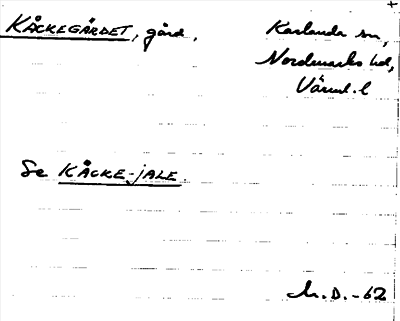 KÅCKEGÄRDET, gård, Karlanda sn,
Nordmarks hd,
Värml. l
Se KÅCKE-JALE.
M.D. -62